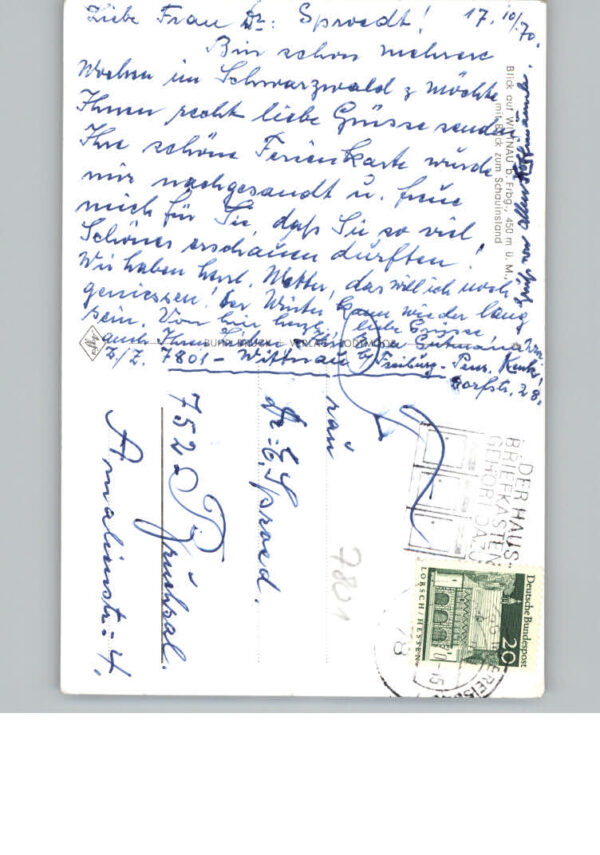 17. 10/70.
Liebe Frau Dr. Sproedt!
Bin schon mehrere
Wochen im Schwarzwald & möchte
Ihnen recht liebe Grüsse senden
Ihre schöne Ferienkarte wurde
mir nachgesandt u. freue
mich für Sie, daß Sie so viel
Schönes erschauen durften!
Wir haben herrl. Wetter, das will ich noch
geniessen! der Winter kann wieder lang
sein. Von hier herzl. liebe Grüsse
auch Ihren
Z/Z. 7801 - Wittnau b/Freiburg - Pens.
Dorfstr. 28.
Blick auf WITTNAU b. Frbg., 450 m ü. M.,
mit Blick zum Schauinsland
VERLAG
Agfa
Frau
Dr. E. Sproed.
752 Bruchsal.
Amalienstr. 4.
7801
DER HAUS-
BRIEFKASTEN
GEHÖRT DAZU
Deutsche Bundespost
20
LORSCH/HESSEN
78